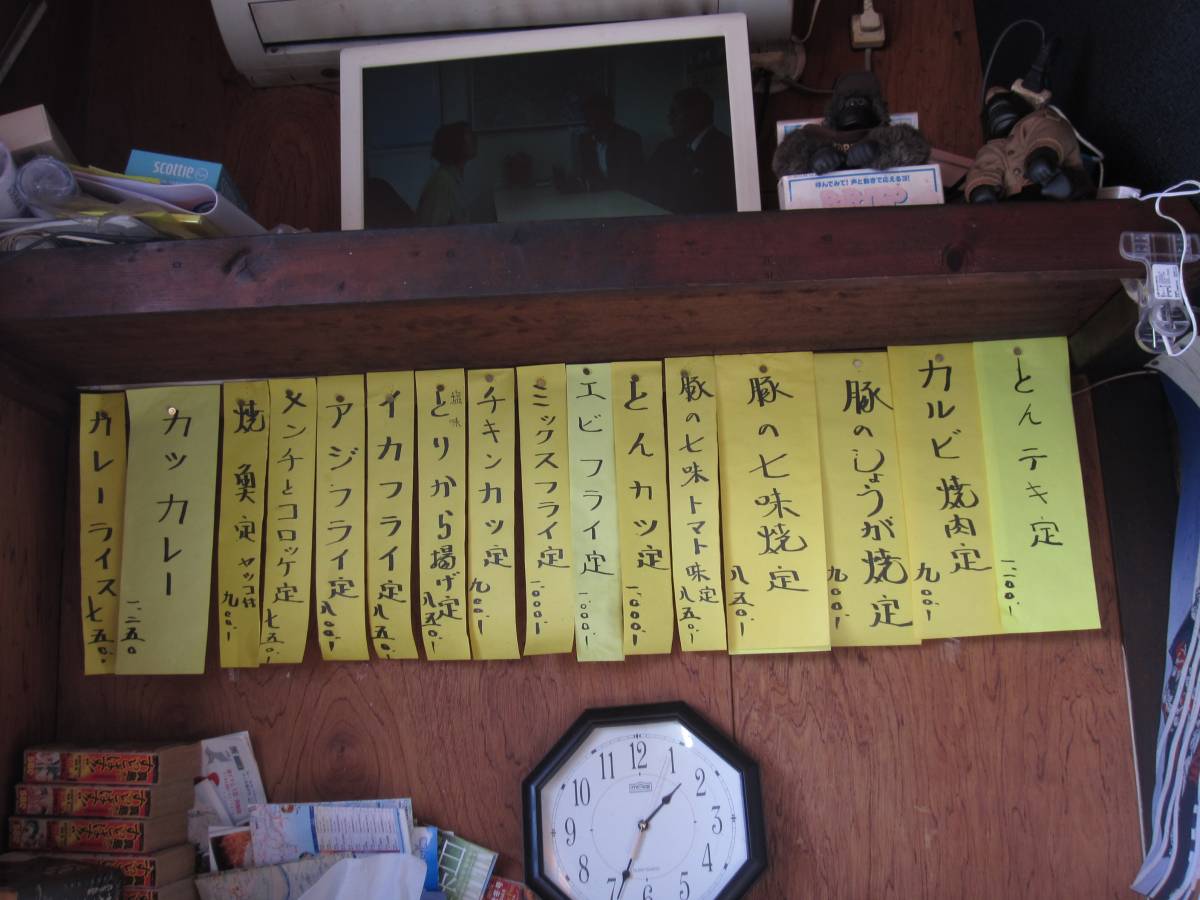 scottie
呼んでみて!声と動きで応えるヨ!
とんテキ定 一、二〇〇、
カルビ焼肉定 九〇〇、
豚のしょうが焼定 九〇〇、
豚の七味焼定 八五〇、
豚の七味トマト味定 八五〇、
とんカツ定 一、〇〇〇、
エビフライ定 一、〇〇〇、
ミックスフライ定 一、〇〇〇、
チキンカツ定 九〇〇、
とりから揚げ定 塩味 八五〇、
イカフライ定 八五〇、
アジフライ定 八〇〇、
メンチとコロッケ定 七五〇、
焼魚定 ヤッコ付 九〇〇、
カツカレー 一、二五〇
カレーライス 七五〇、
12
1
2
3
4
5
6
7
8
9
10
11